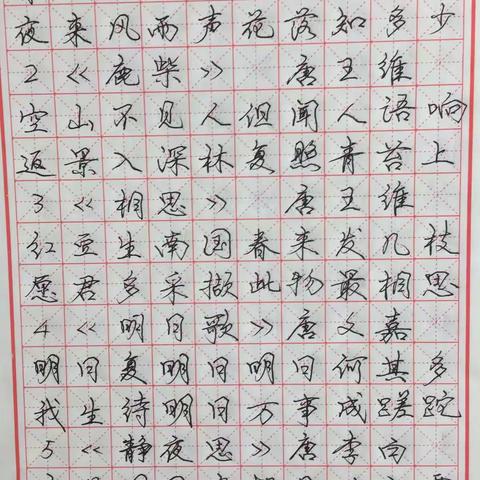 夜来风雨声花落知多少
2《鹿柴》 唐王维
空山不见人但闻人语响
返景入深林复照青苔上
3《相思》 唐王维
红豆生南国春来发几枝
愿君多采撷此物最相思
4《明日歌》唐文嘉
明日复明日明日何其多
我生待明日万事成蹉跎
5《静夜思》唐李白